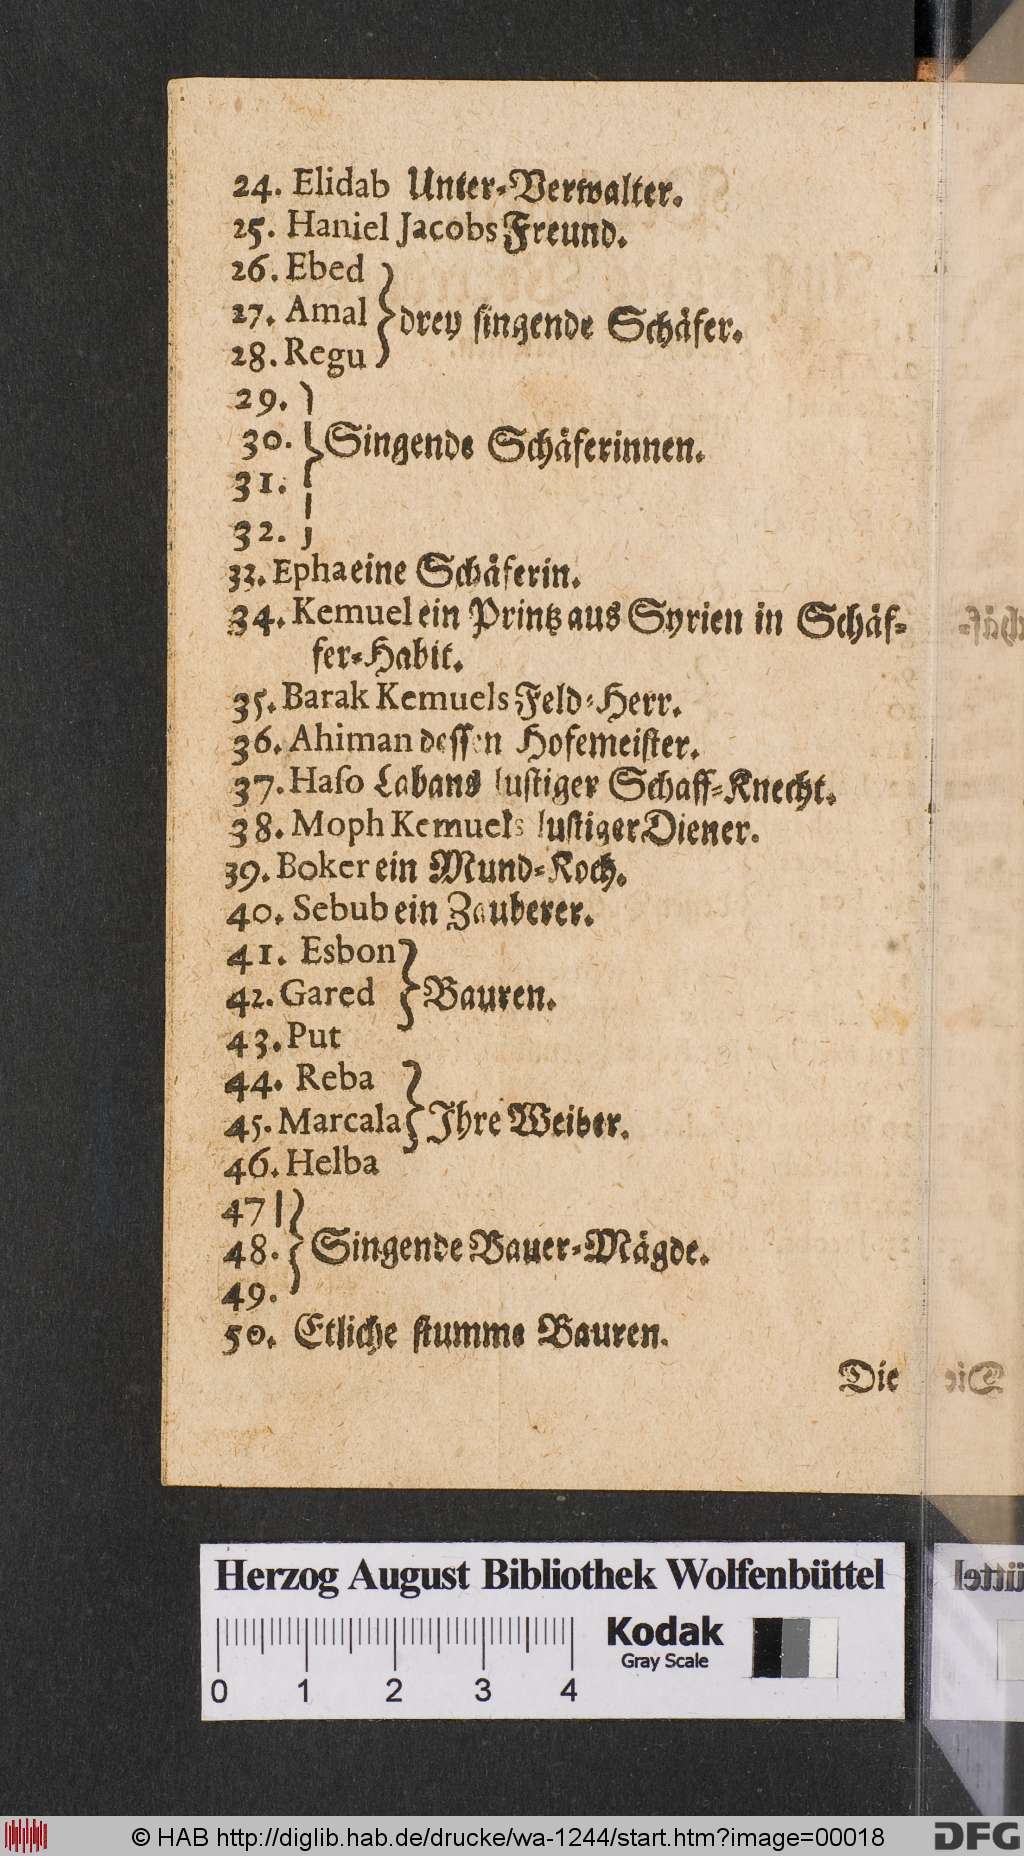 24. Elidab Unter-Verwalter.
25. Haniel Jacobs Freund.
26. Ebed
27. Amal } drey singende Schäfer.
28. Regu
29.
30. } Singende Schäferinnen.
31.
32.
33. Epha eine Schäferin.
34. Kemuel ein Printz aus Syrien in Schäf-
fer-Habit.
35. Barak Kemuels Feld-Herr.
36. Ahiman dessen Hofemeister.
37. Haso Labans lustiger Schaff-Knecht.
38. Moph Kemuels lustiger Diener.
39. Boker ein Mund-Koch.
40. Sebub ein Zauberer.
41. Esbon
42. Gared } Bauren.
43. Put
44. Reba
45. Marcala } Ihre Weiber.
46. Helba
47
48. } Singende Bauer-Mägde.
49.
50. Etliche stumme Bauren.
Die
Herzog August Bibliothek Wolfenbüttel
Kodak
Gray Scale
0 1 2 3 4
© HAB http://diglib.hab.de/drucke/wa-1244/start.htm?image=00018
DFG